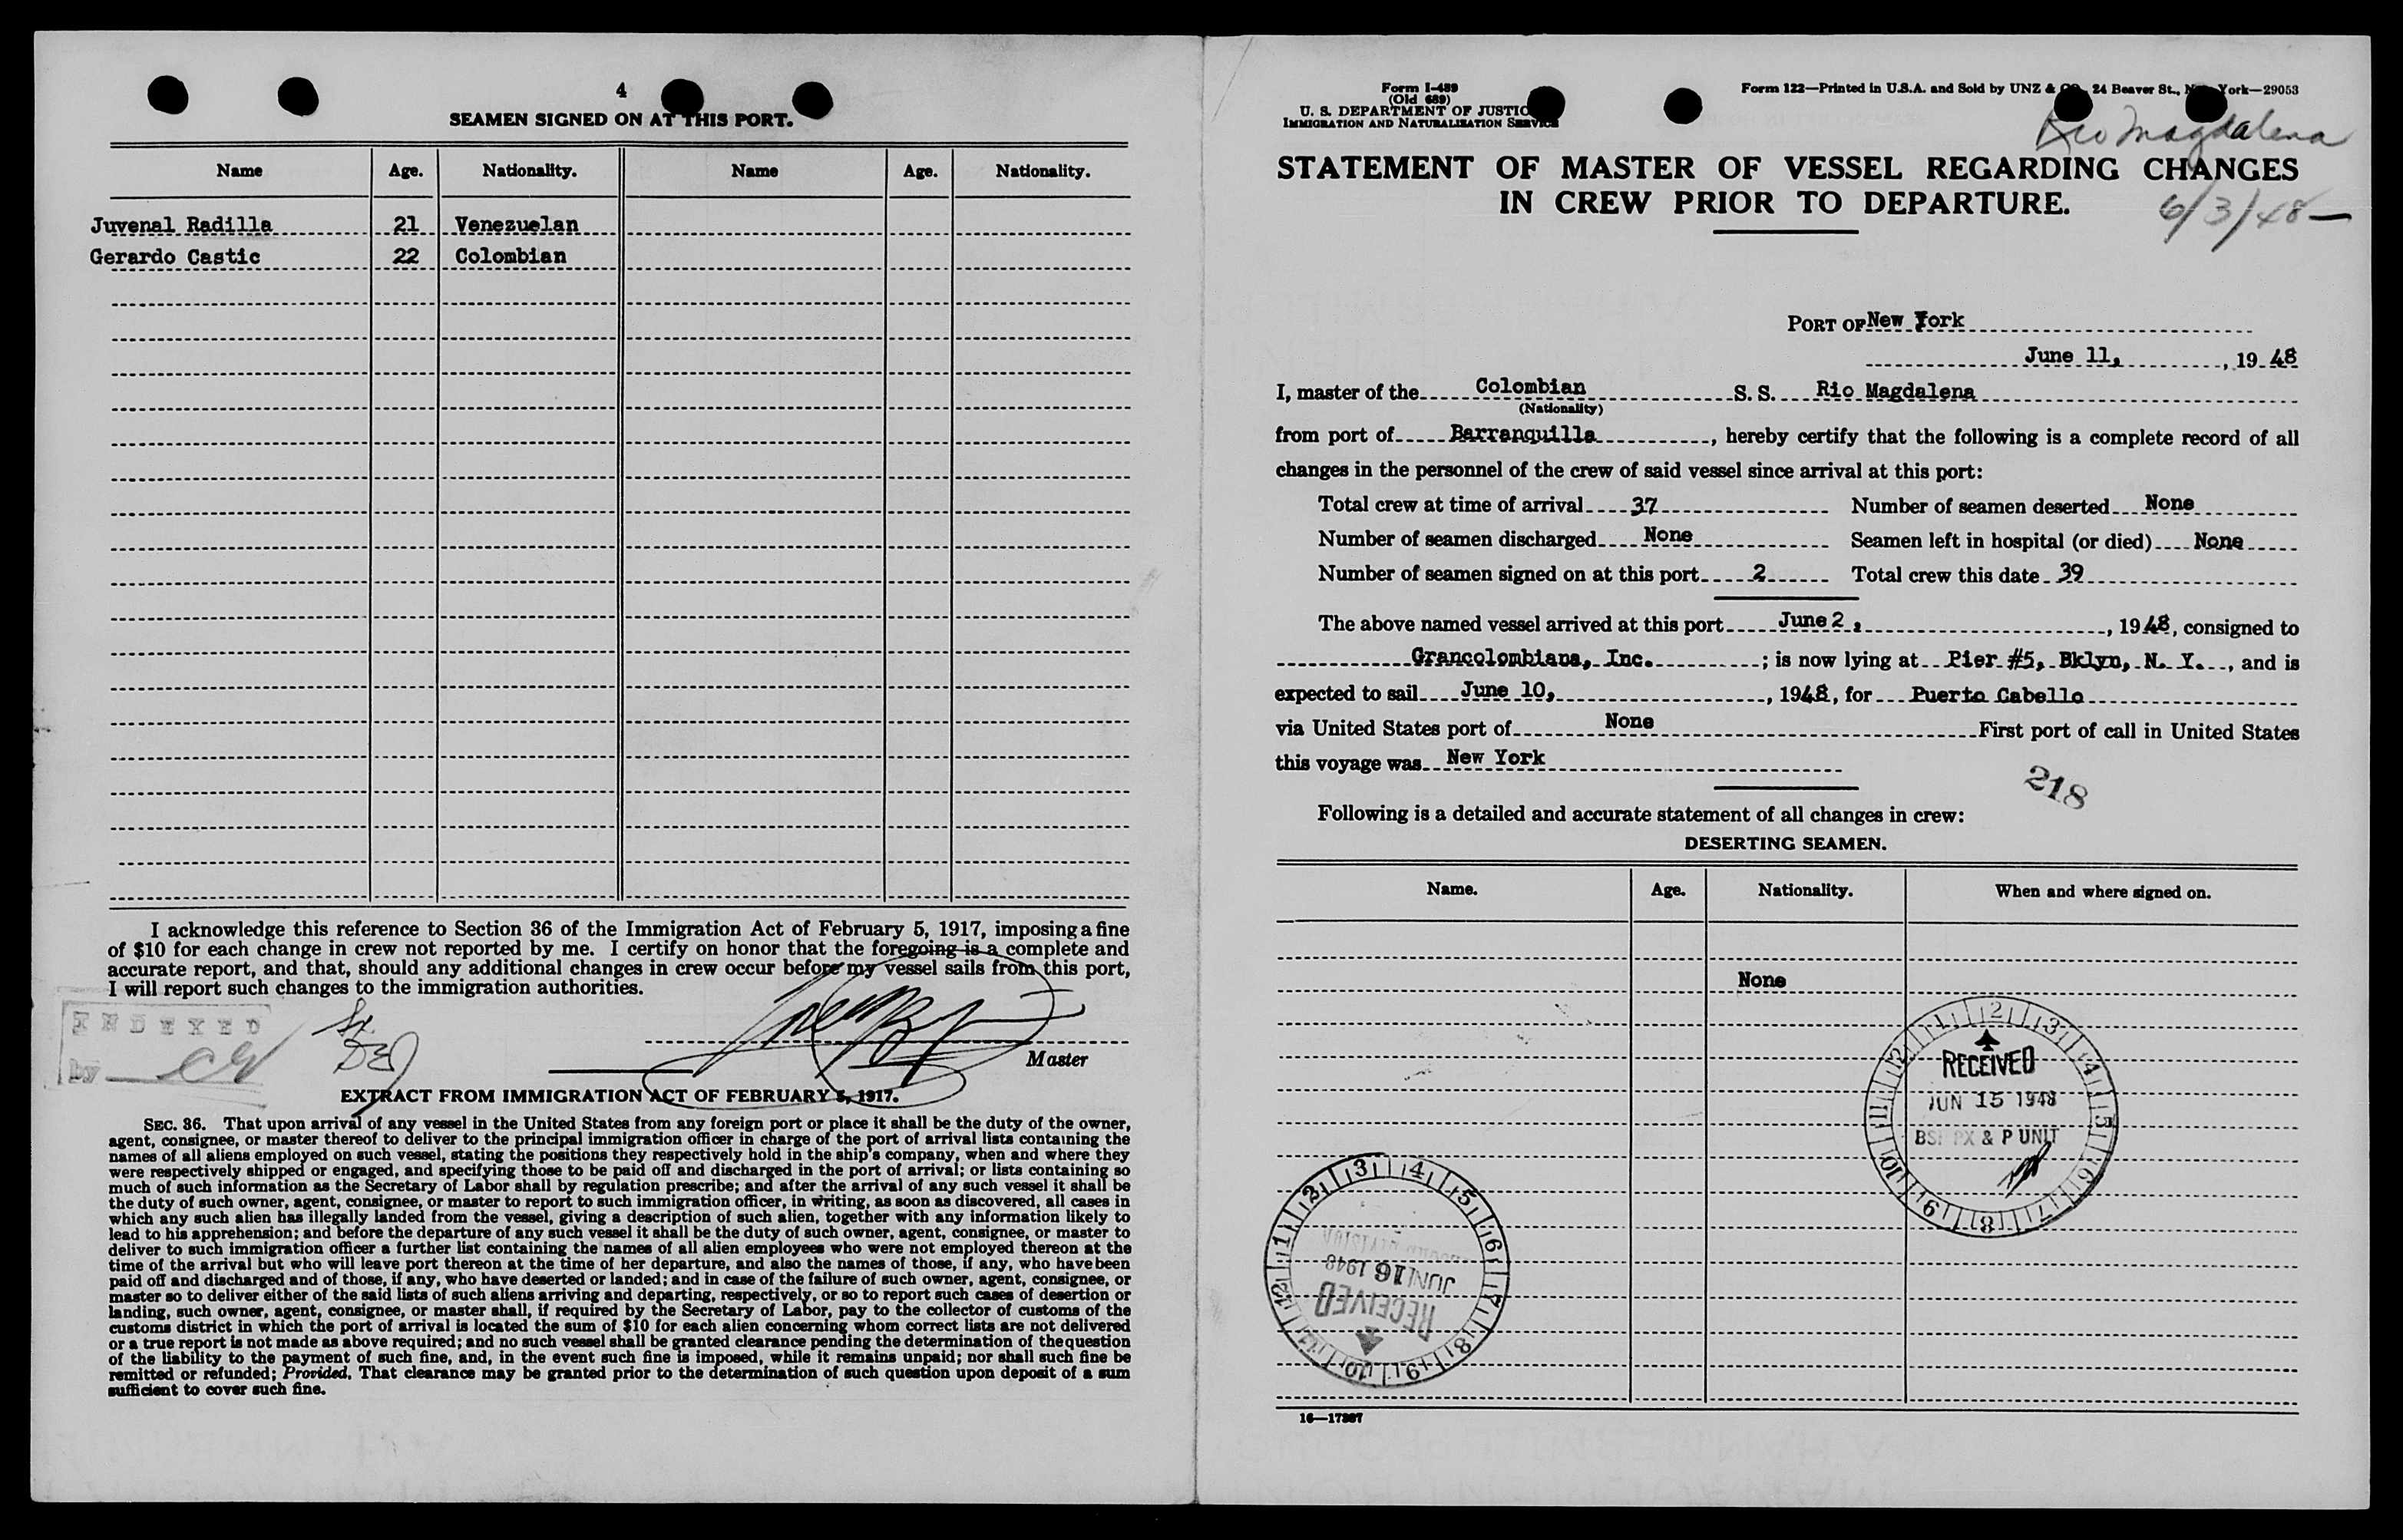 4
SEAMEN SIGNED ON AT THIS PORT.
Name Age. Nationality. Name Age. Nationality.
Juvenal Radilla 21 Venezuelan
Gerardo Castic 22 Colombian
I acknowledge this reference to Section 36 of the Immigration Act of February 5, 1917, imposing a fine
of $10 for each change in crew not reported by me. I certify on honor that the foregoing is a complete and
accurate report, and that, should any additional changes in crew occur before my vessel sails from this port,
I will report such changes to the immigration authorities.
INDEXED
by
Master
EXTRACT FROM IMMIGRATION ACT OF FEBRUARY 5, 1917.
SEC. 36. That upon arrival of any vessel in the United States from any foreign port or place it shall be the duty of the owner,
agent, consignee, or master thereof to deliver to the principal immigration officer in charge of the port of arrival lists containing the
names of all aliens employed on such vessel, stating the positions they respectively hold in the ship's company, when and where they
were respectively shipped or engaged, and specifying those to be paid off and discharged in the port of arrival; or lists containing so
much of such information as the Secretary of Labor shall by regulation prescribe; and after the arrival of any such vessel it shall be
the duty of such owner, agent, consignee, or master to report to such immigration officer, in writing, as soon as discovered, all cases in
which any such alien has illegally landed from the vessel, giving a description of such alien, together with any information likely to
lead to his apprehension; and before the departure of any such vessel it shall be the duty of such owner, agent, consignee, or master to
deliver to such immigration officer a further list containing the names of all alien employees who were not employed thereon at the
time of the arrival but who will leave port thereon at the time of her departure, and also the names of those, if any, who have been
paid off and discharged and of those, if any, who have deserted or landed; and in case of the failure of such owner, agent, consignee, or
master so to deliver either of the said lists of such aliens arriving and departing, respectively, or so to report such cases of desertion or
landing, such owner, agent, consignee, or master shall, if required by the Secretary of Labor, pay to the collector of customs of the
customs district in which the port of arrival is located the sum of $10 for each alien concerning whom correct lists are not delivered
or a true report is not made as above required; and no such vessel shall be granted clearance pending the determination of the question
of the liability to the payment of such fine, and, in the event such fine is imposed, while it remains unpaid; nor shall such fine be
remitted or refunded; Provided, That clearance may be granted prior to the determination of such question upon deposit of a sum
sufficient to cover such fine.
Form I-489
(Old 689)
U. S. DEPARTMENT OF JUSTICE
IMMIGRATION AND NATURALIZATION SERVICE
Form 122—Printed in U.S.A. and Sold by UNZ & CO. 24 Beaver St., New York—29053
Rio Magdalena
STATEMENT OF MASTER OF VESSEL REGARDING CHANGES
IN CREW PRIOR TO DEPARTURE.
6/3/48—
PORT OF New York
June 11, , 19 48
I, master of the Colombian S. S. Rio Magdalena
(Nationality)
from port of Barranquilla , hereby certify that the following is a complete record of all
changes in the personnel of the crew of said vessel since arrival at this port:
Total crew at time of arrival 37 Number of seamen deserted None
Number of seamen discharged None Seamen left in hospital (or died) None
Number of seamen signed on at this port 2 Total crew this date 39
The above named vessel arrived at this port June 2, , 1948, consigned to
Grancolombiana, Inc. ; is now lying at Pier #5, Bklyn, N. Y. , and is
expected to sail June 10, , 1948, for Puerto Cabello
via United States port of None First port of call in United States
this voyage was New York
218
Following is a detailed and accurate statement of all changes in crew:
DESERTING SEAMEN.
Name. Age. Nationality. When and where signed on.
None
1 2 3 4 5 6 7 8 9 10 11 12
RECEIVED
JUN 15 1948
BSI PX & P UNIT
1 2 3 4 5 6 7 8 9 10 11 12
DIVISION
JUN 16 1948
RECEIVED
16—17397